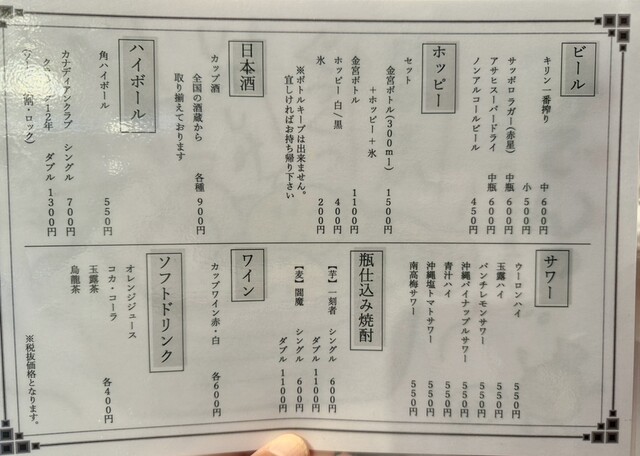 ビール
キリン一番搾り 中 600円
小 500円
サッポロラガー(赤星) 中瓶 600円
アサヒスーパードライ 中瓶 600円
ノンアルコールビール 450円
ホッピー
セット
金宮ボトル(300ml)
＋ホッピー＋氷 1500円
金宮ボトル 1100円
ホッピー 白／黒 400円
氷 200円
※ボトルキープは出来ません。
宜しければお持ち帰り下さい
日本酒
カップ酒 各種 900円
全国の酒蔵から
取り揃えております
ハイボール
角ハイボール 550円
カナディアンクラブ シングル 700円
12年 ダブル 1300円
・ロック)
サワー
ウーロンハイ 550円
玉露ハイ 550円
パンチレモンサワー 550円
沖縄パイナップルサワー 550円
青汁ハイ 550円
沖縄塩トマトサワー 550円
南高梅サワー 550円
瓶仕込み焼酎
【芋】一刻者 シングル 600円
ダブル 1100円
【麦】閻魔 シングル 600円
ダブル 1100円
ワイン
カップワイン赤・白 各600円
ソフトドリンク
オレンジジュース
コカ・コーラ 各400円
玉露茶
烏龍茶
※税抜価格となります。